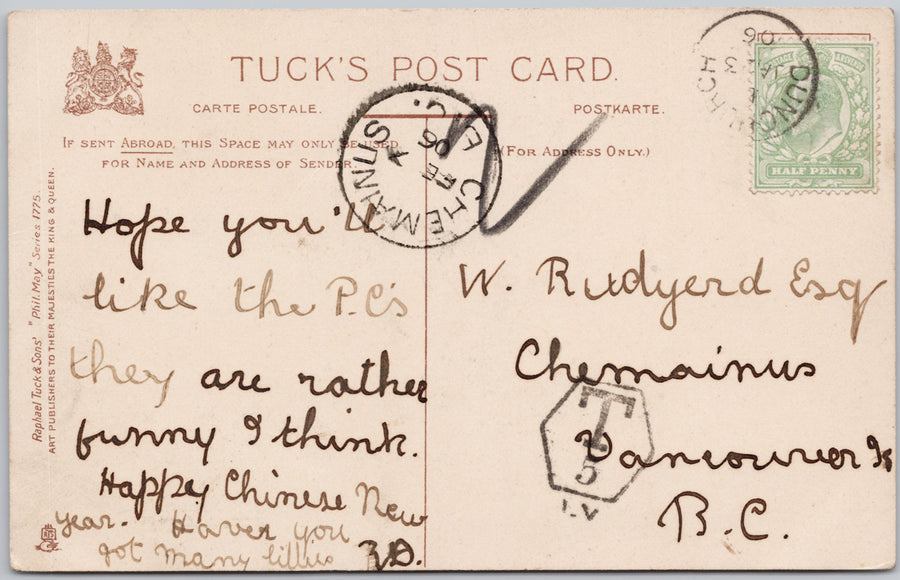 TUCK'S POST CARD.
CARTE POSTALE.
POSTKARTE.
IF SENT ABROAD, THIS SPACE MAY ONLY BE USED
FOR NAME AND ADDRESS OF SENDER.
(FOR ADDRESS ONLY.)
HALF PENNY
06
JA 23
CHEMAINUS
B.C.
FE 4
06
Raphael Tuck & Sons' "Phil. May" Series 1775.
ART PUBLISHERS TO THEIR MAJESTIES THE KING & QUEEN.
Hope you'll
like the P.C's
they are rather
funny I think.
Happy Chinese New
year. Haven you
got many lillies
W. Rudyerd Esq
Chemainus
Vancouver Is
B.C.
T
5